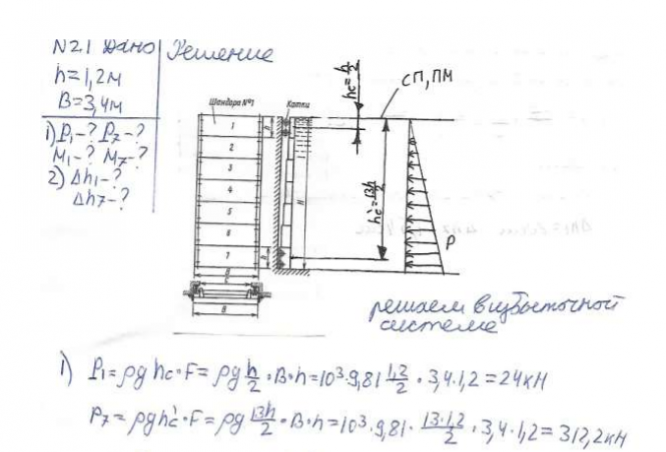 N2.1 Дано Решение
h=1,2м
B=3,4м
1) P₁-? P₇-?
M₁-? M₇-?
2) Δh₁-?
Δh₇-?
Шандора №1
Катки
hc=h/2
СП, ПМ
1
2
3
4
5
6
7
h
h
H
hc'=13h/2
P
B
решаем в избыточной
системе
1) P₁=ρg hc·F=ρg h/2·B·h=10³·9,81 1,2/2·3,4·1,2=24кН
P₇=ρghc'·F=ρg 13h/2·B·h=10³·9,81·13·1,2/2·3,4·1,2=312,2кН